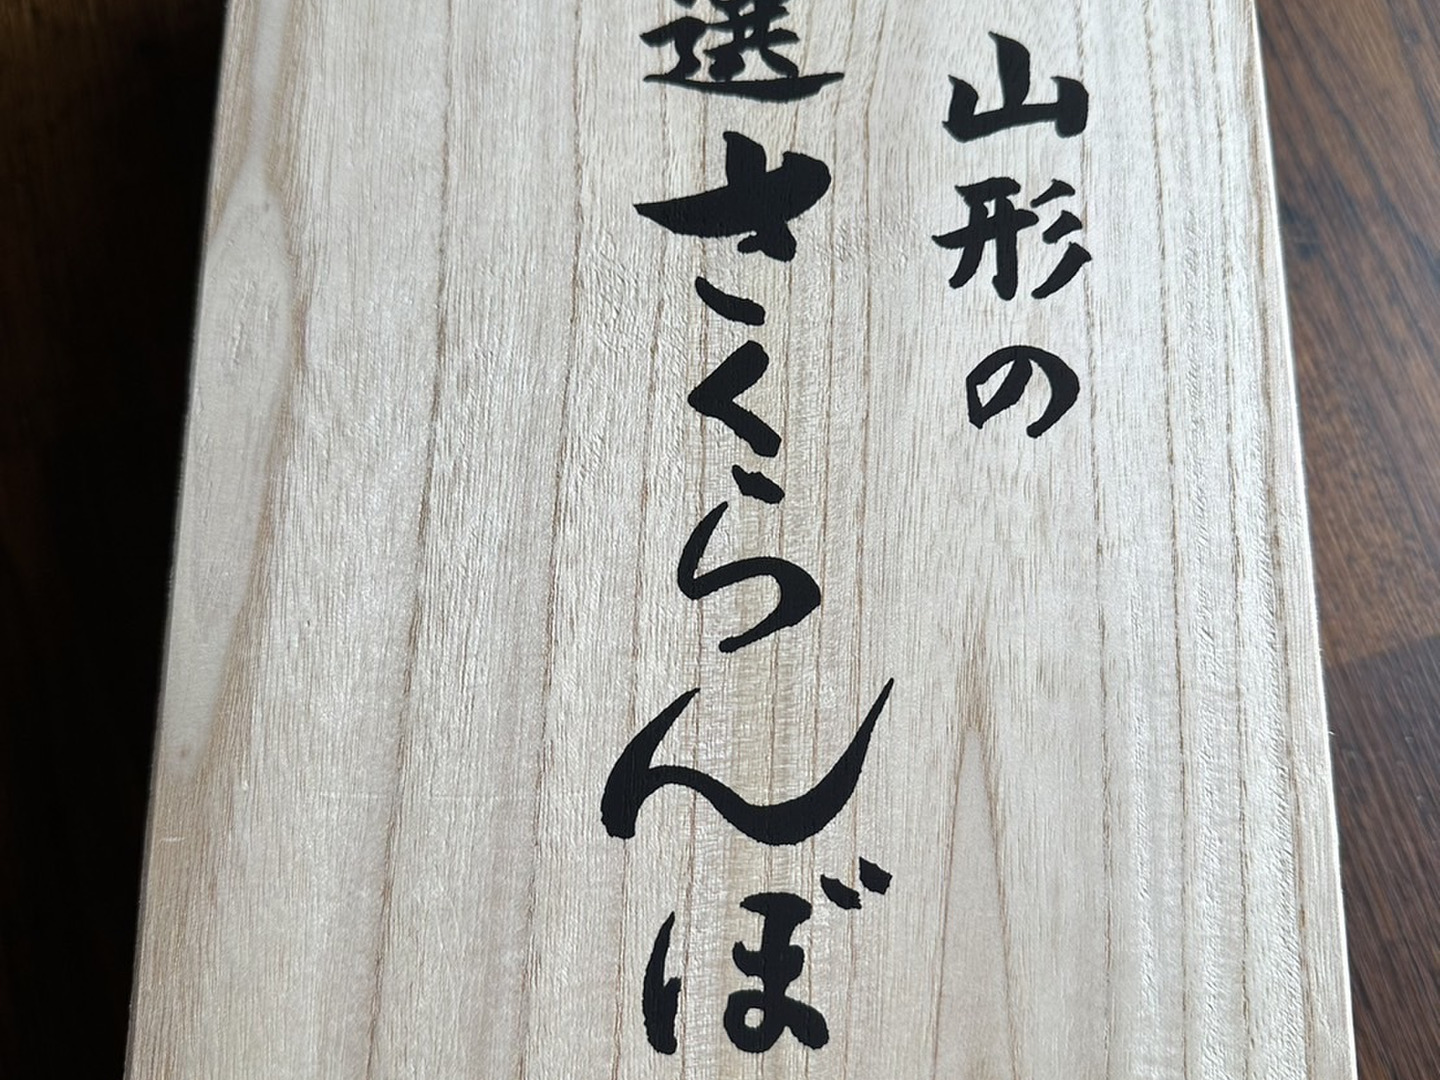 山形の
選さくらんぼ